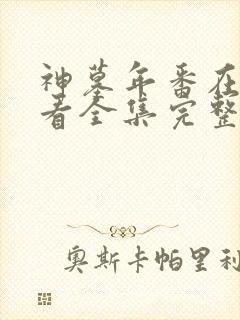 神墓年番在
看全集完整
奥斯卡帕里利